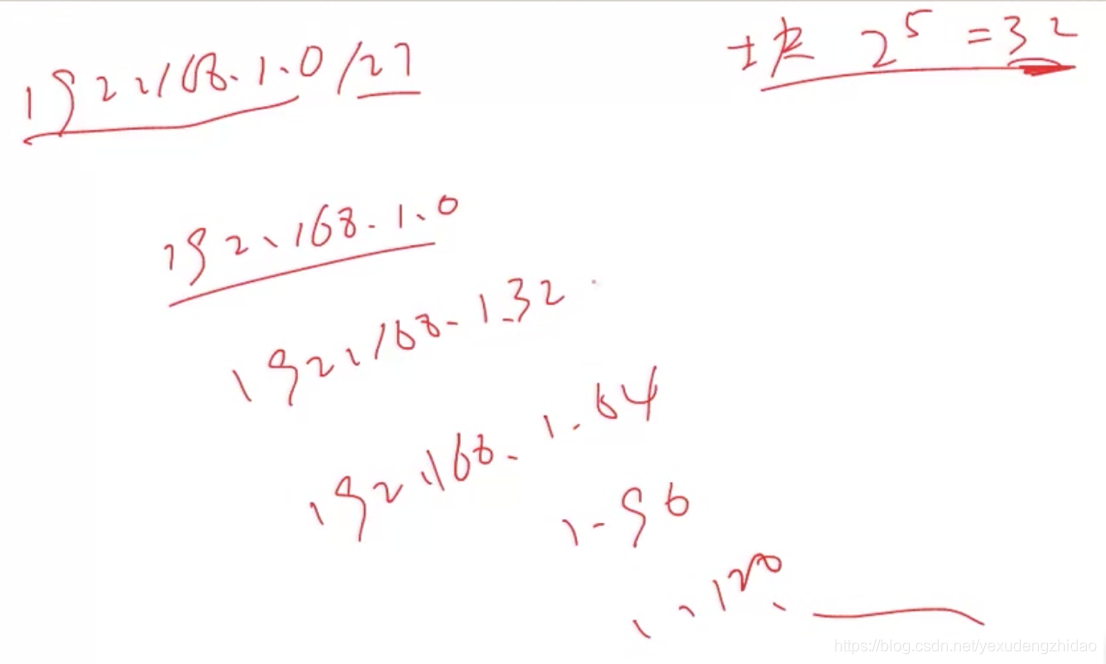 192.168.1.0/27
块 2⁵ = 32
192.168.1.0
192.168.1.32
192.168.1.64
1.96
1.128
https://blog.csdn.net/yexudengzhidao